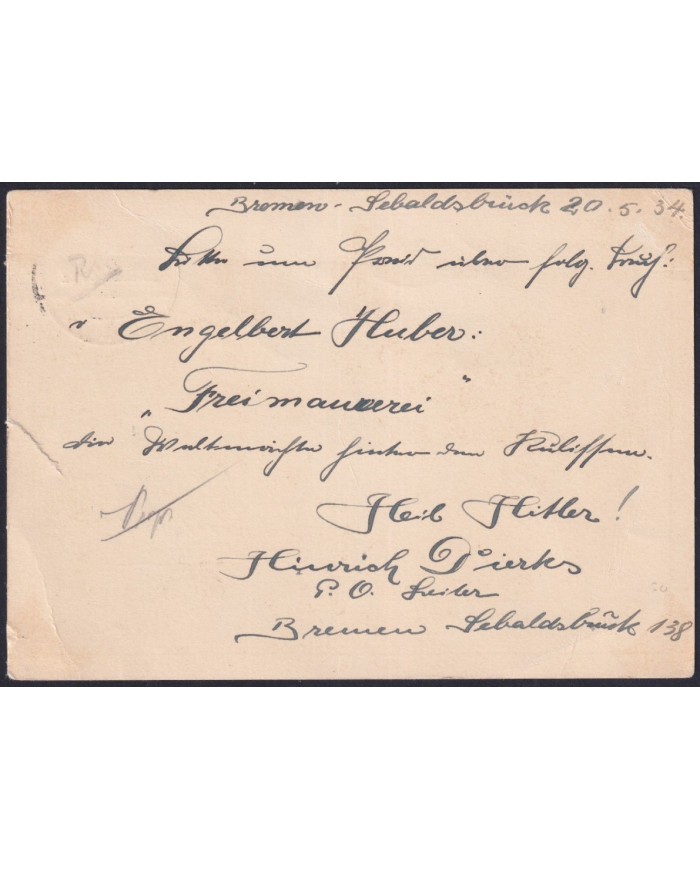 Bremen-Sebaldsbrück 20.5.34.
Bitte um Preis über folg. Buch:
" Engelbert Huber:
„Freimaurerei"
die Weltmächte hinter den Kulissen.
Heil Hitler!
Hinrich Dierks
P. O. Leiter
Bremen Sebaldsbrück 138